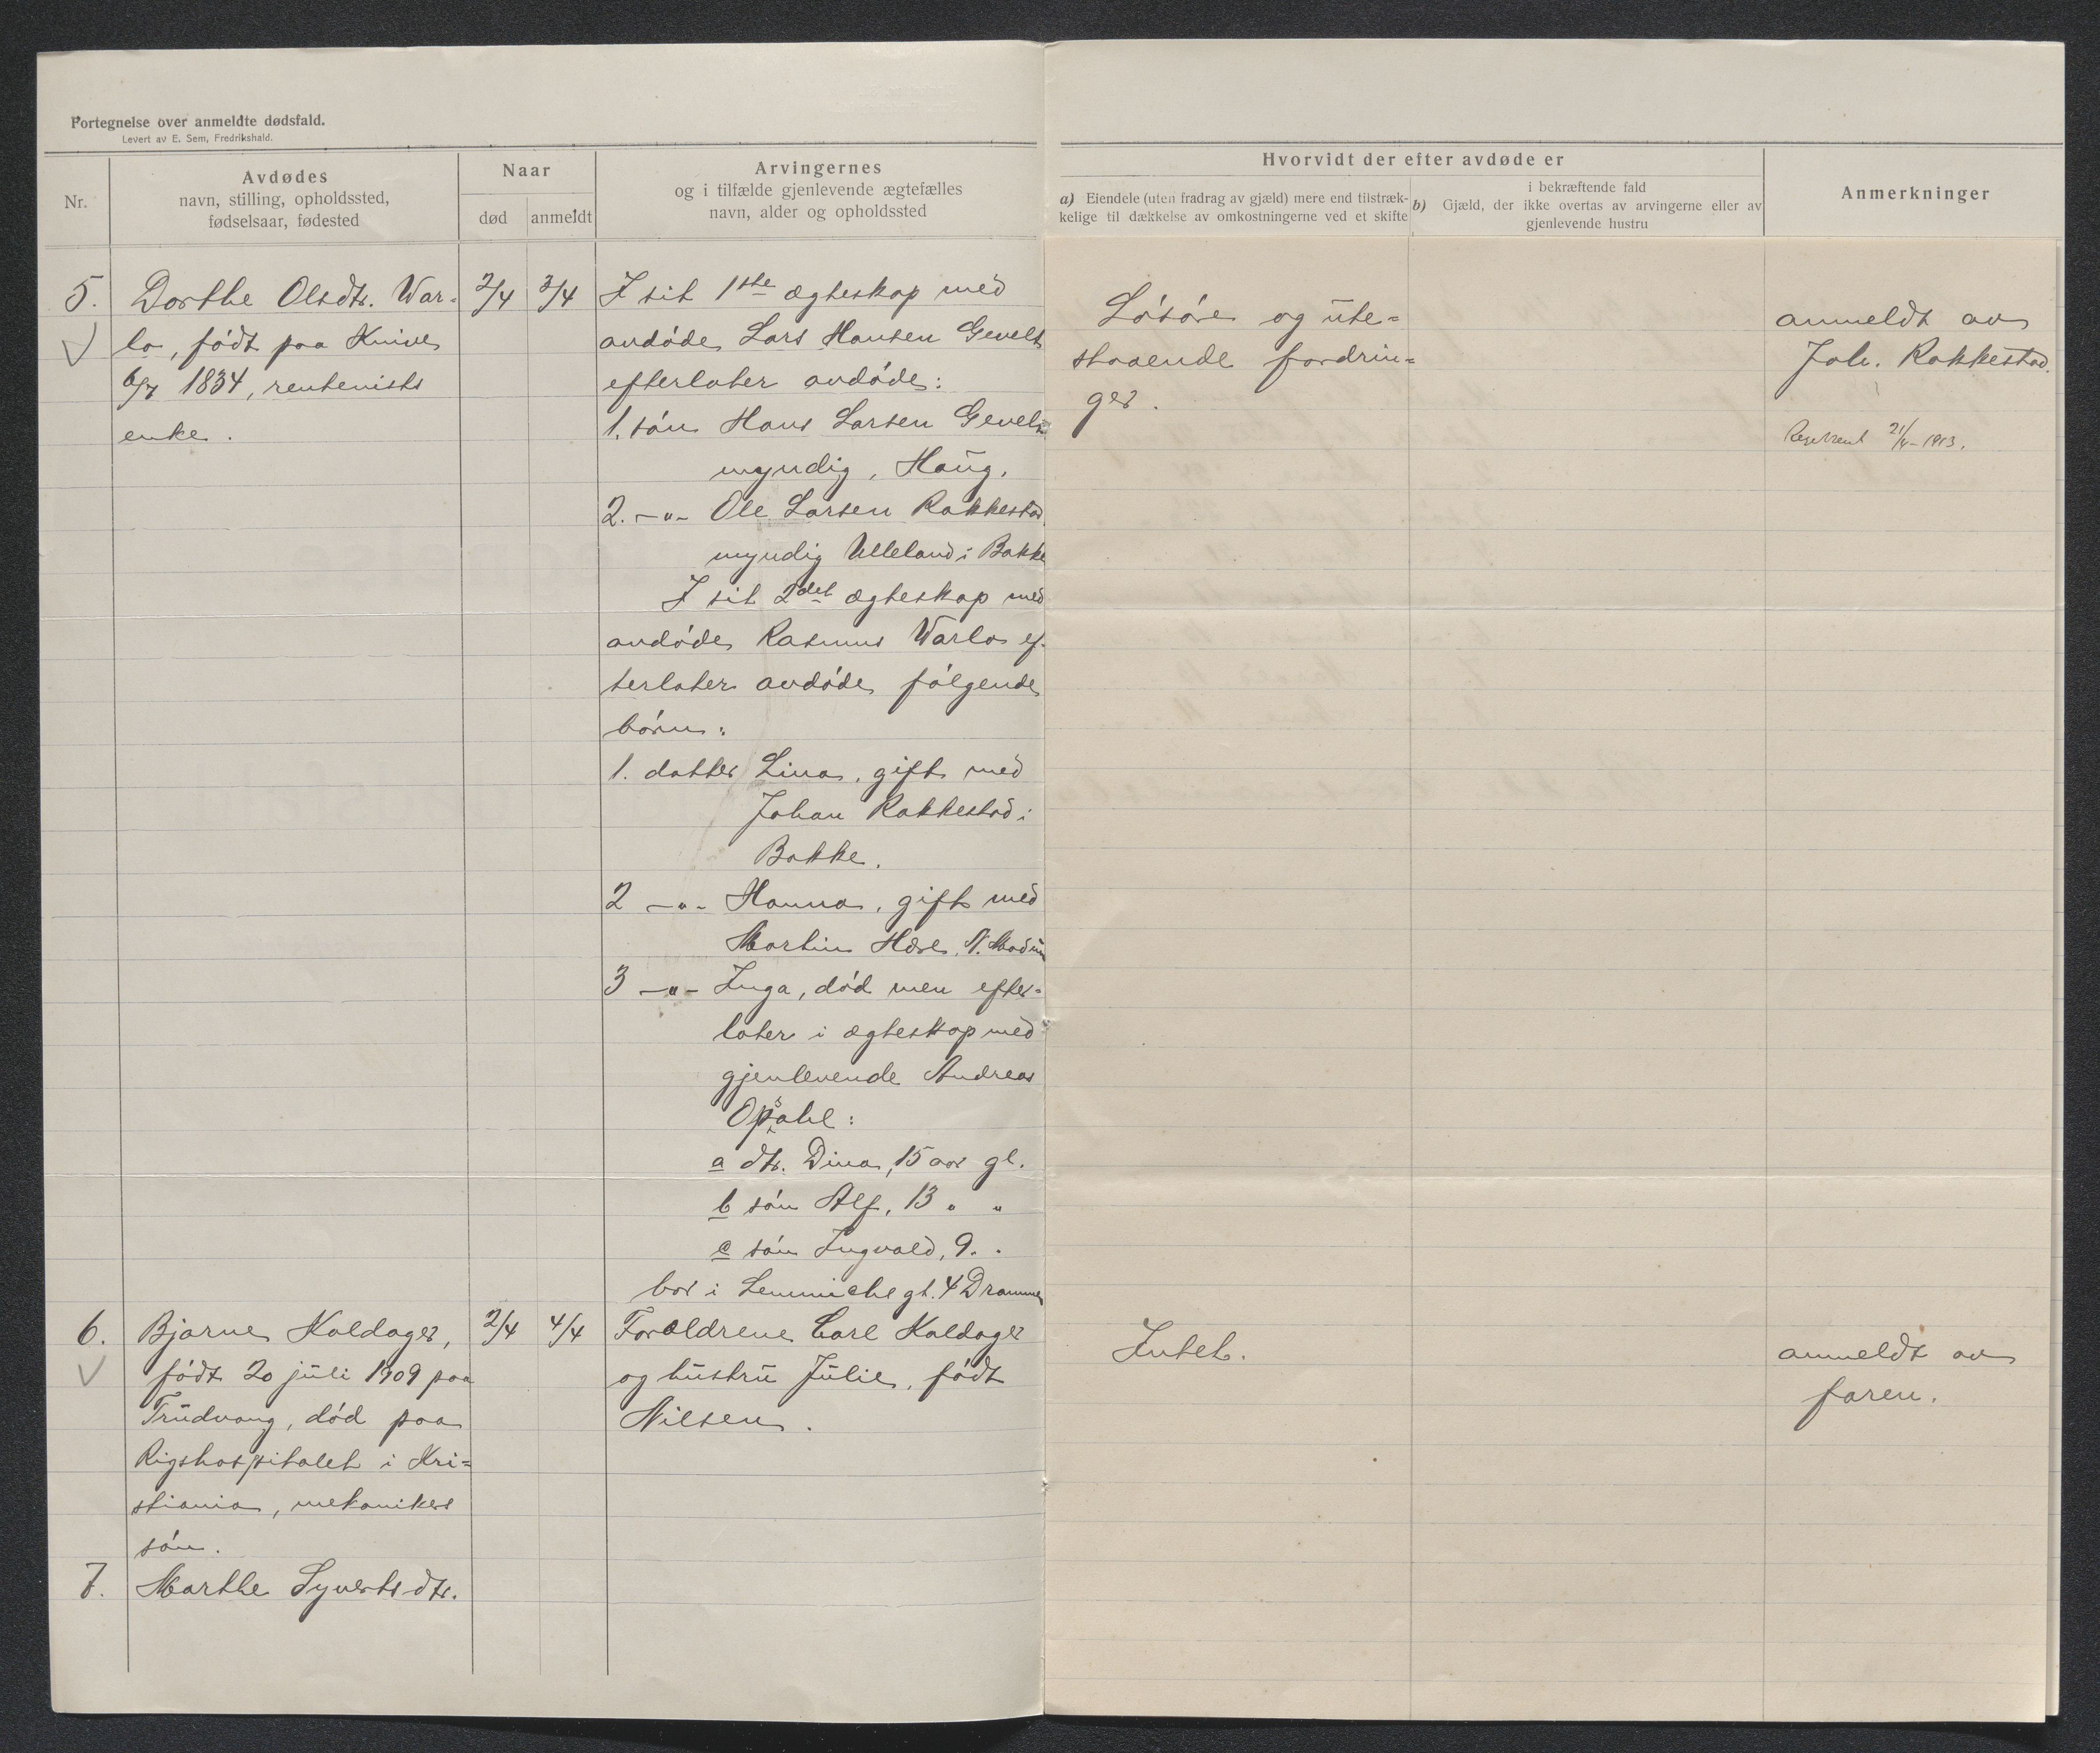 Fortegnelse over anmeldte dødsfald.
Levert av E. Sem, Fredrikshald.
Nr.
Avdødes
navn, stilling, opholdssted,
fødselsaar, fødested
Naar
død
anmeldt
Arvingernes
og i tilfælde gjenlevende ægtefælles
navn, alder og opholdssted
Hvorvidt der efter avdøde er
a) Eiendele (uten fradrag av gjæld) mere end tilstræk-
kelige til dækkelse av omkostningerne ved et skifte
i bekræftende fald
b) Gjæld, der ikke overtas av arvingerne eller av
gjenlevende hustru
Anmerkninger
5.
Dorthe Olsdtr. War-
lo, født paa Knive
6/7 1834, rentenists
enke.
2/4
3/4
I sit 1ste ægteskap med
avdøde Lars Hansen Gevelt
efterlater avdøde:
1. søn Hans Larsen Gevelt
myndig, Haug.
2. -"- Ole Larsen Rakkestad
myndig Ulleland i Bakke
I sit 2det ægteskap med
avdøde Rasmus Warlo ef-
terlater avdøde følgende
børn:
1. datter Lina, gift med
Johan Rakkestad i
Bakke.
2 -"- Hanna, gift med
Martin Høre, N. Modum
3 -"- Inga, død men efter-
later i ægteskap med
gjenlevende Andreas
Opsahl:
a dtr. Dina, 15 aar gl.
b søn Alf, 13 " "
c søn Ingvald, 9 " "
bor i Lemmiche gt. 4 Drammen
Løsøre og ute-
staaende fordrin-
ger.
anmeldt av
Joh. Rakkestad.
21/4-1913.
6.
Bjarne Kaldager,
født 20 juli 1909 paa
Trudvang, død paa
Rigshospitalet i Kri-
stiania, mekanikers
søn.
2/4
4/4
Forældrene Carl Kaldager
og hustru Julie, født
Nilsen.
Intet.
anmeldt av
faren.
7.
Marthe Syvertsdtr.